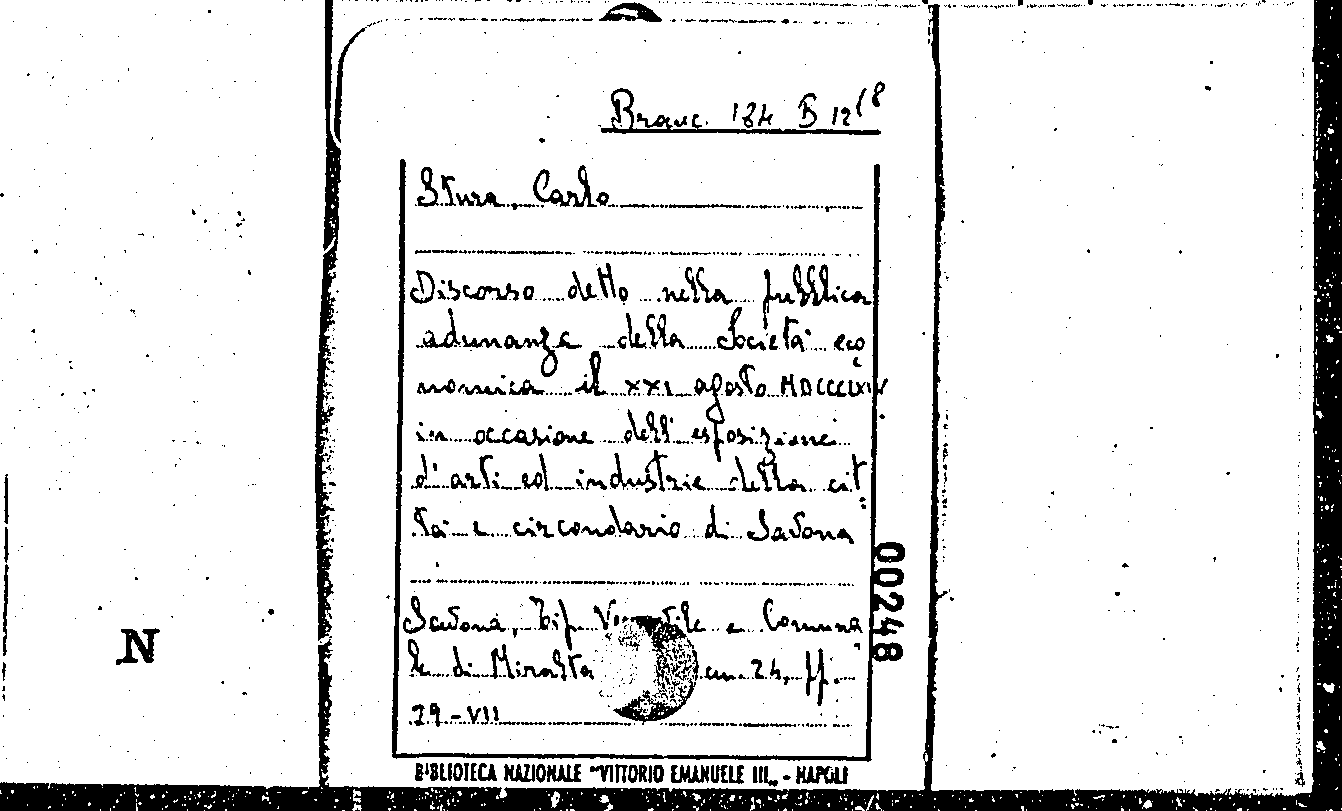 Branc. 184 B 12(8
Stura, Carlo
Discorso detto nella pubblica
adunanza della Società eco
nomica il XXI agosto MDCCCLXIV
in occasione dell'esposizione
d'arti ed industrie della cit
tà e circondario di Savona
Savona, Tip. e Comuna
le di Miralta cm. 24, pp.
79-VII
BIBLIOTECA NAZIONALE "VITTORIO EMANUELE III„ - NAPOLI
00248
N